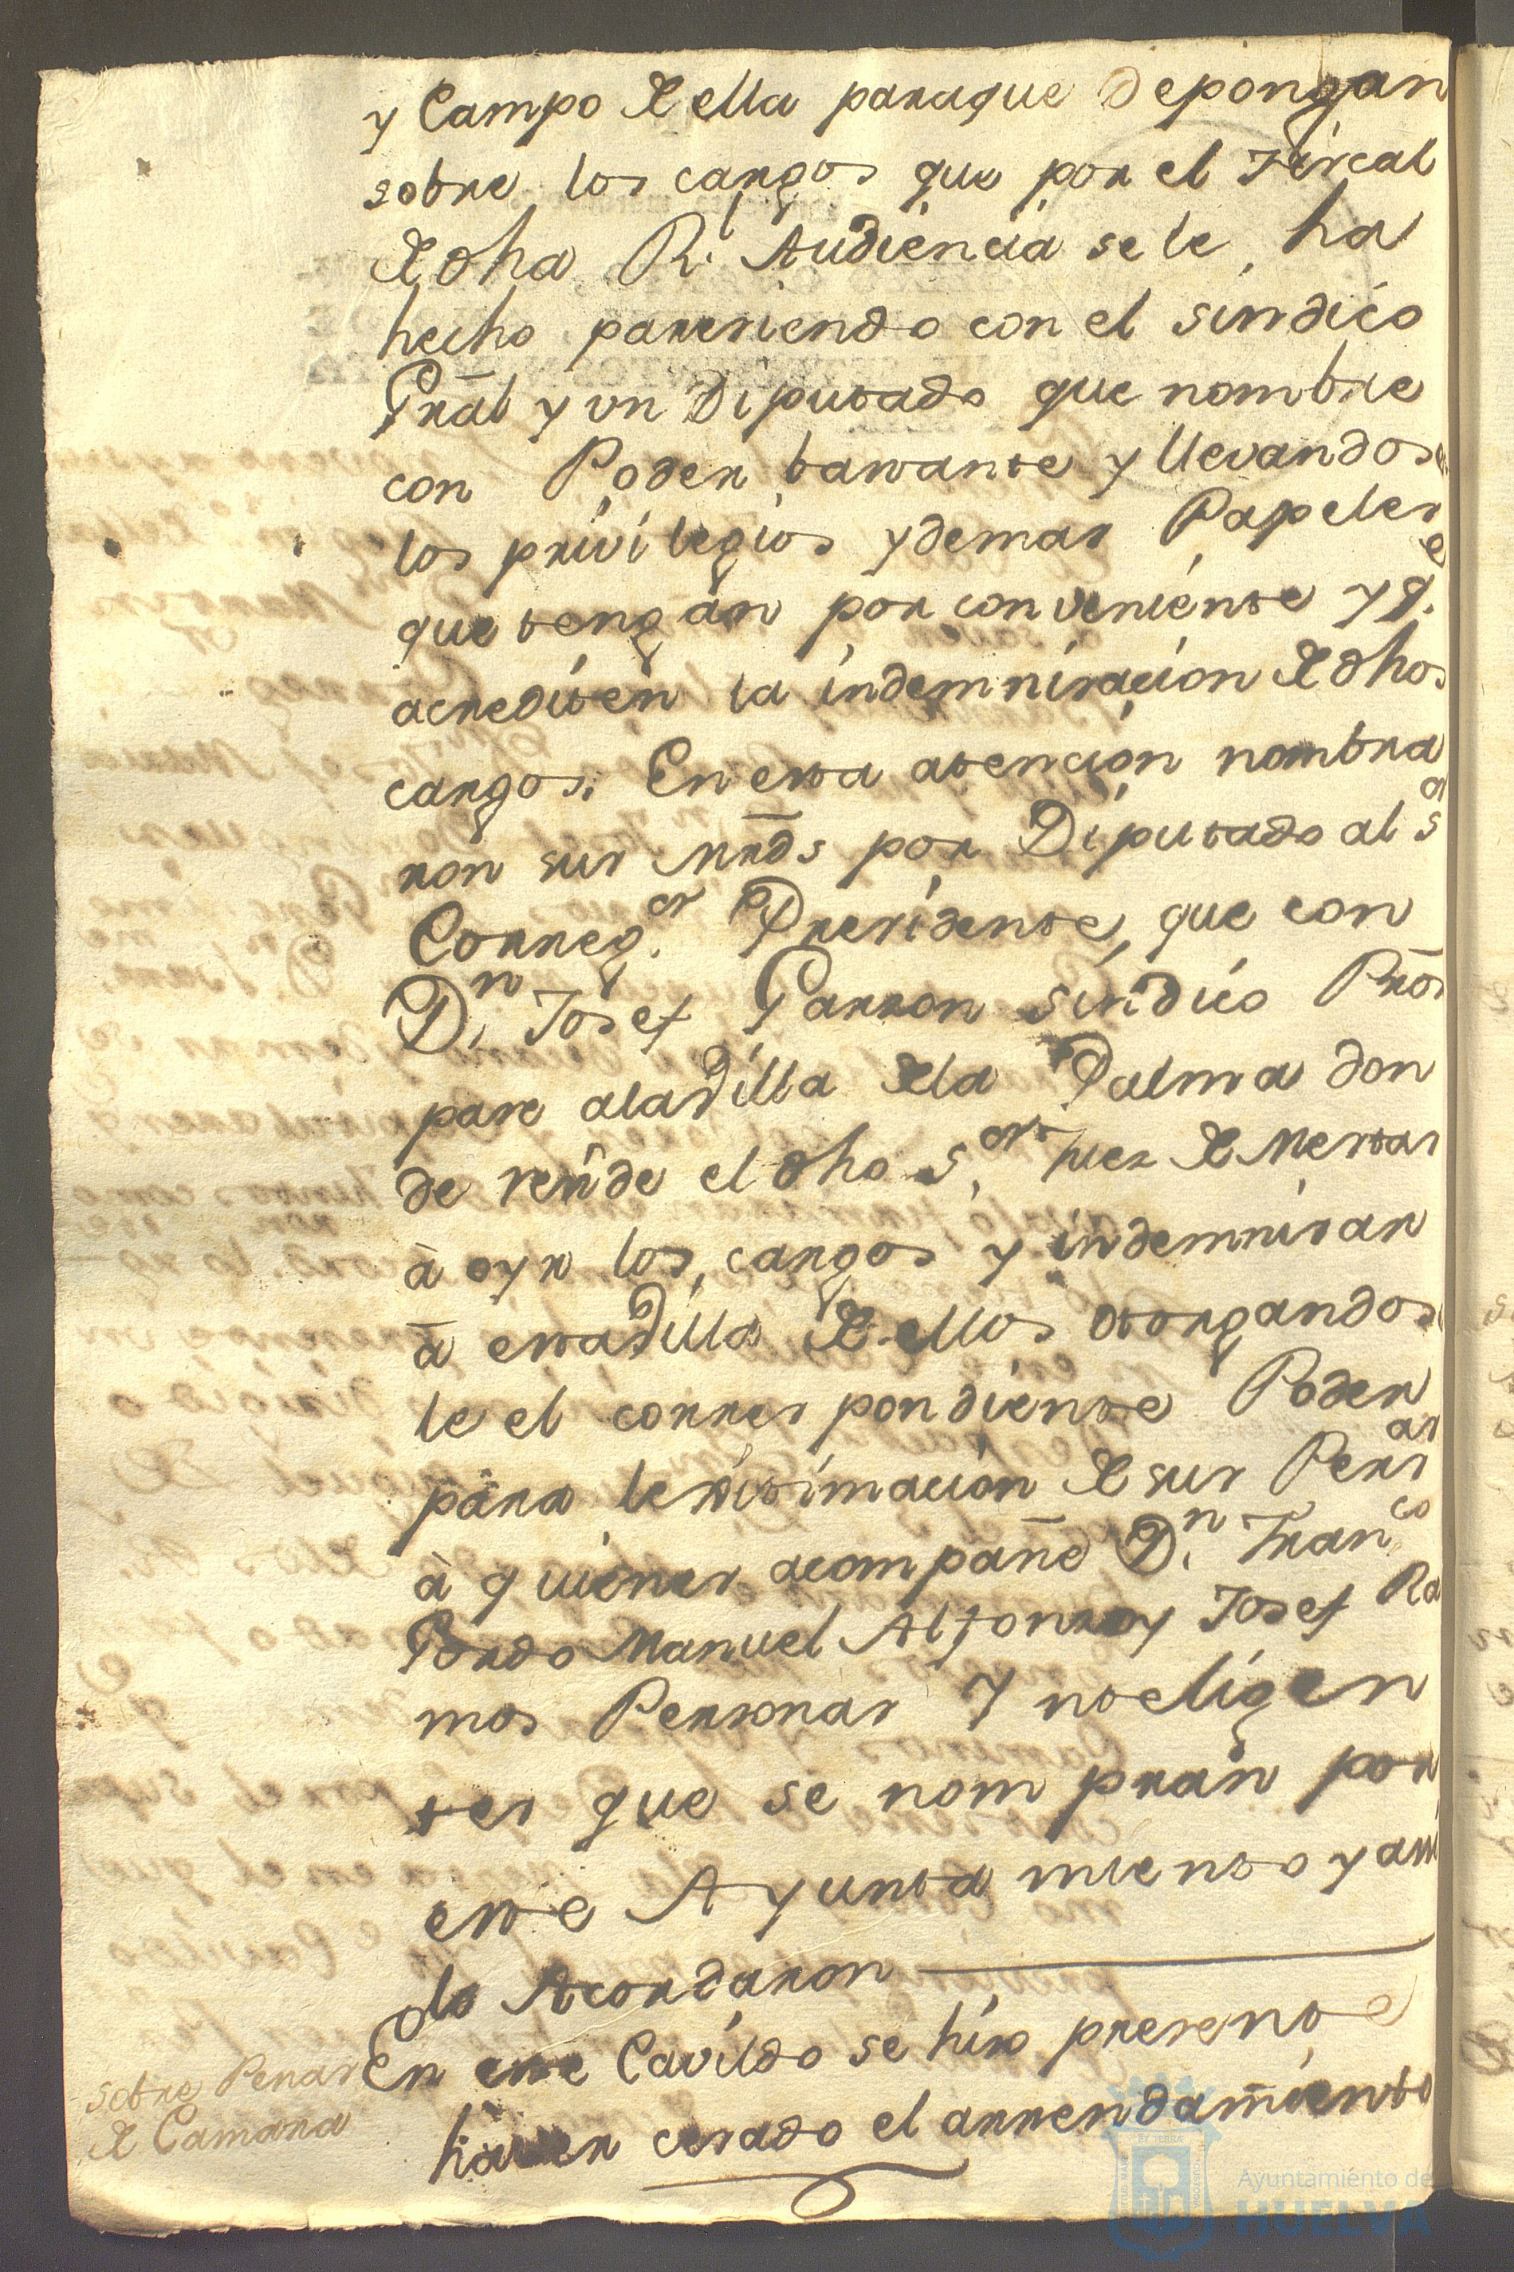 y Campo de ella paraque depongan
sobre los cargos que por el Fiscal
de dha Rl. Audiencia se le ha
hecho pareciendo con el sindico
Gral y un Diputado que nombre
con Poder bastante y llevandose
los privilegios y demas Papeles
que tengan por conveniente y qe.
acrediten la indemnisacion de dhos
cargos. En esta atencion nombra
ron sus Mrds por Diputado al Sor
Corregor. Presidente, que con
Dn. Josef Garron sindico Pror
pase ala Villa de la Palma don
de reside el dho Sor. Juez de Mestas
à oyr los cargos y indemnisar
à esta Villa de ellos otorgandos
le el correspondiente Poder
para lexitimacion de sus Persas
à quienes acompañe Dn. Franco
Gordo Manuel Alfonso y Josef Ra
mos Personas Ynteligen
tes que se nompran por
este Ayuntamiento y assi
lo Acordaron
En este Cavildo se hiso presente
haver cesado el arrendamiento
sobre Penas
de Camara
Ayuntamiento de
HUELVA